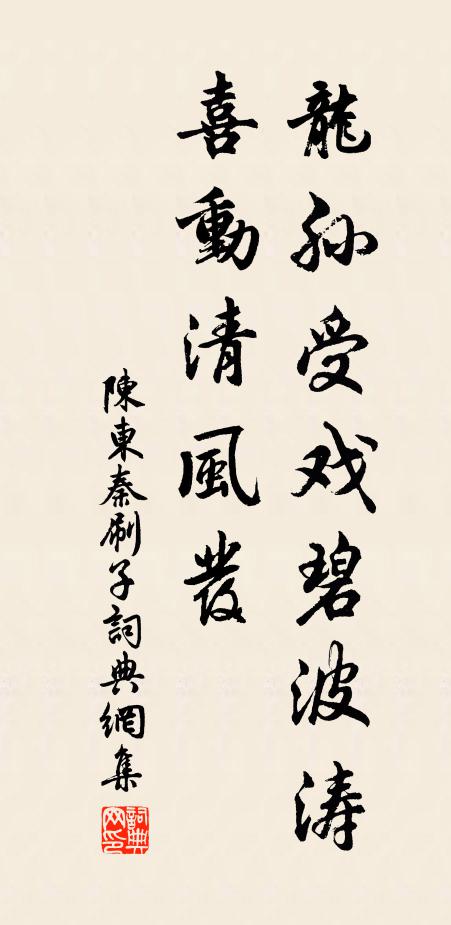 龍孙受戏碧波涛
喜動清風發
陳東秦刷子詞典網集
詞典网印